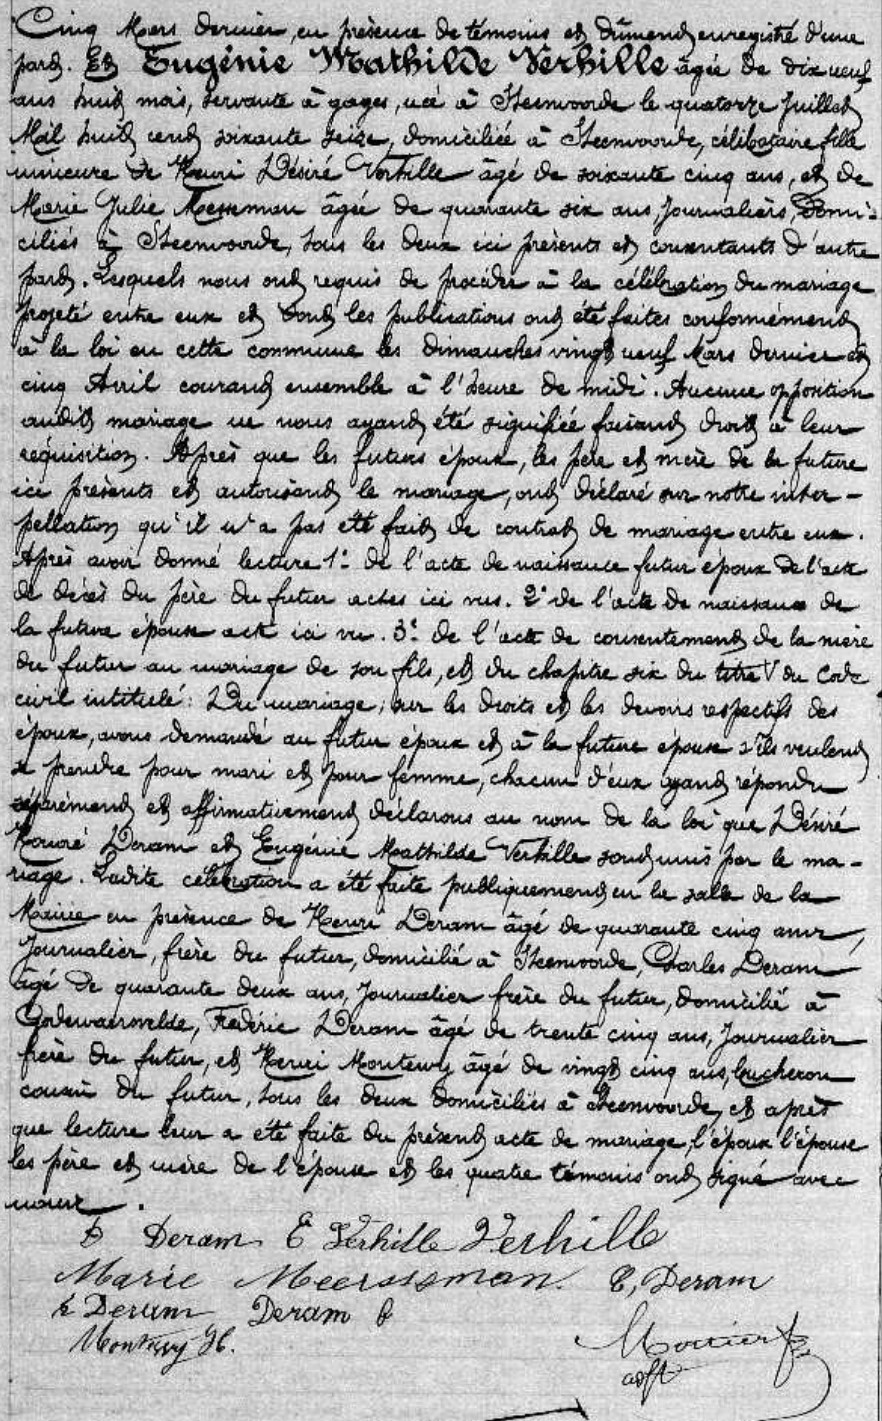 Cinq Mars dernier, en présence de témoins et dûment enregistré d'une
part. Et Eugénie Mathilde Verhille âgée de dix neuf
ans huit mois, servante à gages, née à Steenvoorde le quatorze Juillet
Mil huit cent soixante seize, domiciliée à Steenvoorde, célibataire fille
mineure de Henri Désiré Verhille âgé de soixante cinq ans, et de
Marie Julie Messeman âgée de quarante six ans, Journaliers, Domi-
ciliés à Steenvoorde, tous les deux ici présents et consentants d'autre
part. Lesquels nous ont requis de procéder à la célébration du mariage
projeté entre eux et dont les publications ont été faites conformément
à la loi en cette commune les dimanches vingt neuf Mars dernier et
cinq Avril courant ensemble à l'heure de midi. Aucune opposition
audit mariage ne nous ayant été signifiée faisant droit à leur
réquisition. Après que les futurs époux, les père et mère de la future
ici présents et autorisant le mariage, ont déclaré sur notre inter-
pellation qu'il n'a pas été fait de contrat de mariage entre eux.
Après avoir donné lecture 1° de l'acte de naissance futur époux de l'acte
de décès du père du futur actes ici vus. 2° de l'acte de naissance de
la future épouse acte ici vu. 3° de l'acte de consentement de la mère
du futur au mariage de son fils, et du chapitre six du titre V du Code
civil intitulé: Du mariage; sur les droits et les devoirs respectifs des
époux, avons demandé au futur époux et à la future épouse s'ils veulent
se prendre pour mari et pour femme, chacun d'eux ayant répondu
séparément et affirmativement déclarons au nom de la loi que Désiré
Honoré Deram et Eugénie Mathilde Verhille sont unis par le ma-
riage. Ladite célébration a été faite publiquement en la salle de la
Mairie en présence de Henri Deram âgé de quarante cinq ans,
Journalier, frère du futur, domicilié à Steenvoorde, Charles Deram
âgé de quarante deux ans, Journalier frère du futur, domicilié à
Godewaersvelde, Frédéric Deram âgé de trente cinq ans, Journalier
frère du futur, et Henri Montewy âgé de vingt cinq ans, bucheron
cousin du futur, tous les deux domiciliés à Steenvoorde, et après
que lecture leur a été faite du présent acte de mariage, l'époux l'épouse
les père et mère de l'épouse et les quatre témoins ont signé avec
nous.
D Deram E Verhille Verhille
Marie Meerssman. C, Deram
h Deram Deram f
Montewy H.
adjt